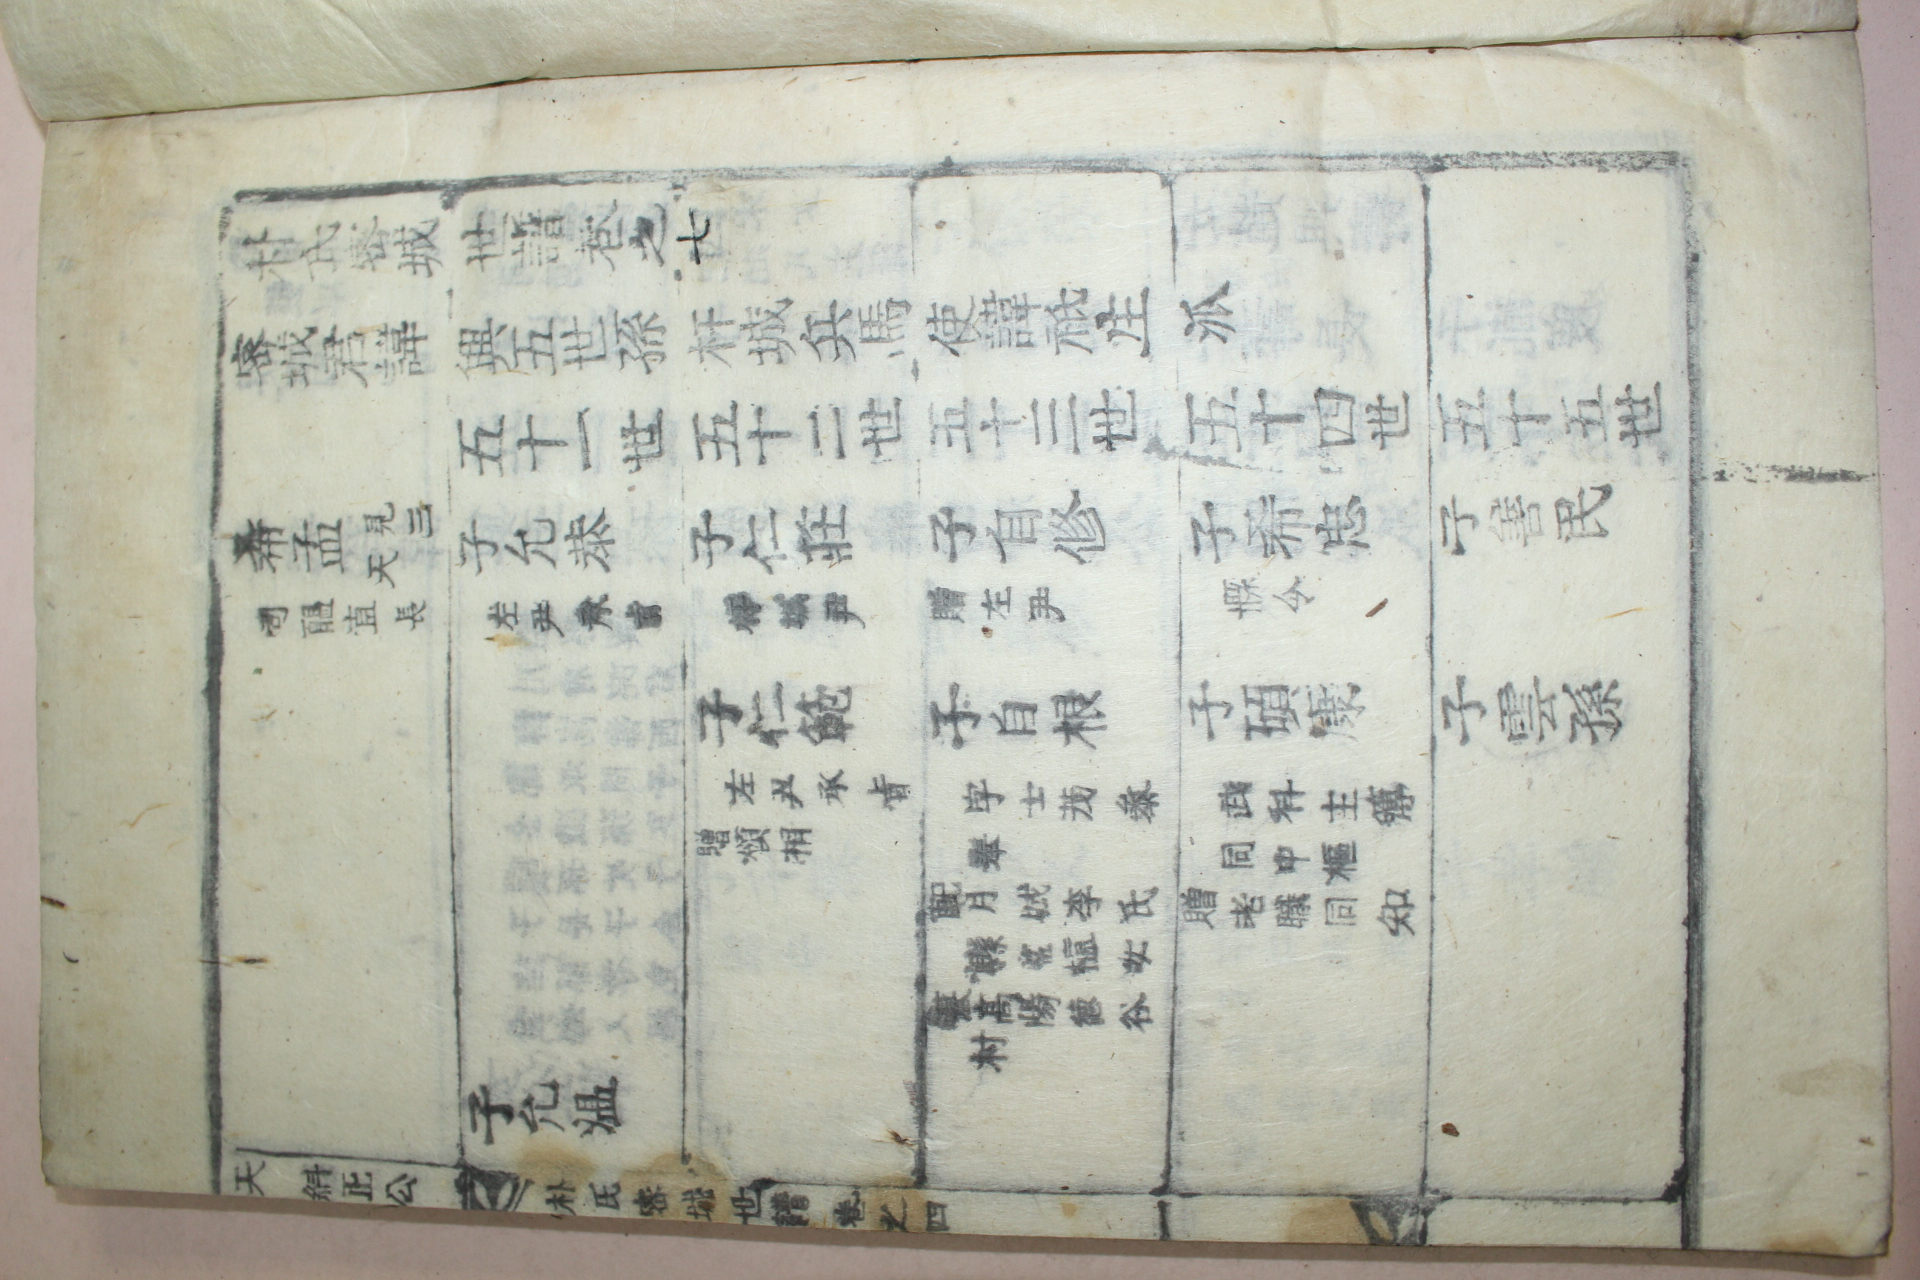 朴氏密城世譜卷之七
密城君諱興五世孫杆城兵馬使諱祇生派
五十一世
五十二世
五十三世
五十四世
五十五世
希孟
見三
天
司醞直長
子允恭
左尹承旨
子仁莊
杆城尹
子自修
贈左尹
子希忠
縣令
子善民
子仁範
左尹承旨
贈領相
子自根
字士茂叅
奉
配月城李氏
縣監樞女
墓高陽德谷
村
子碩康
武科主簿
同中樞
贈老職同知
子雲孫
子允温
天 糾正公
朴氏密城世譜卷之四